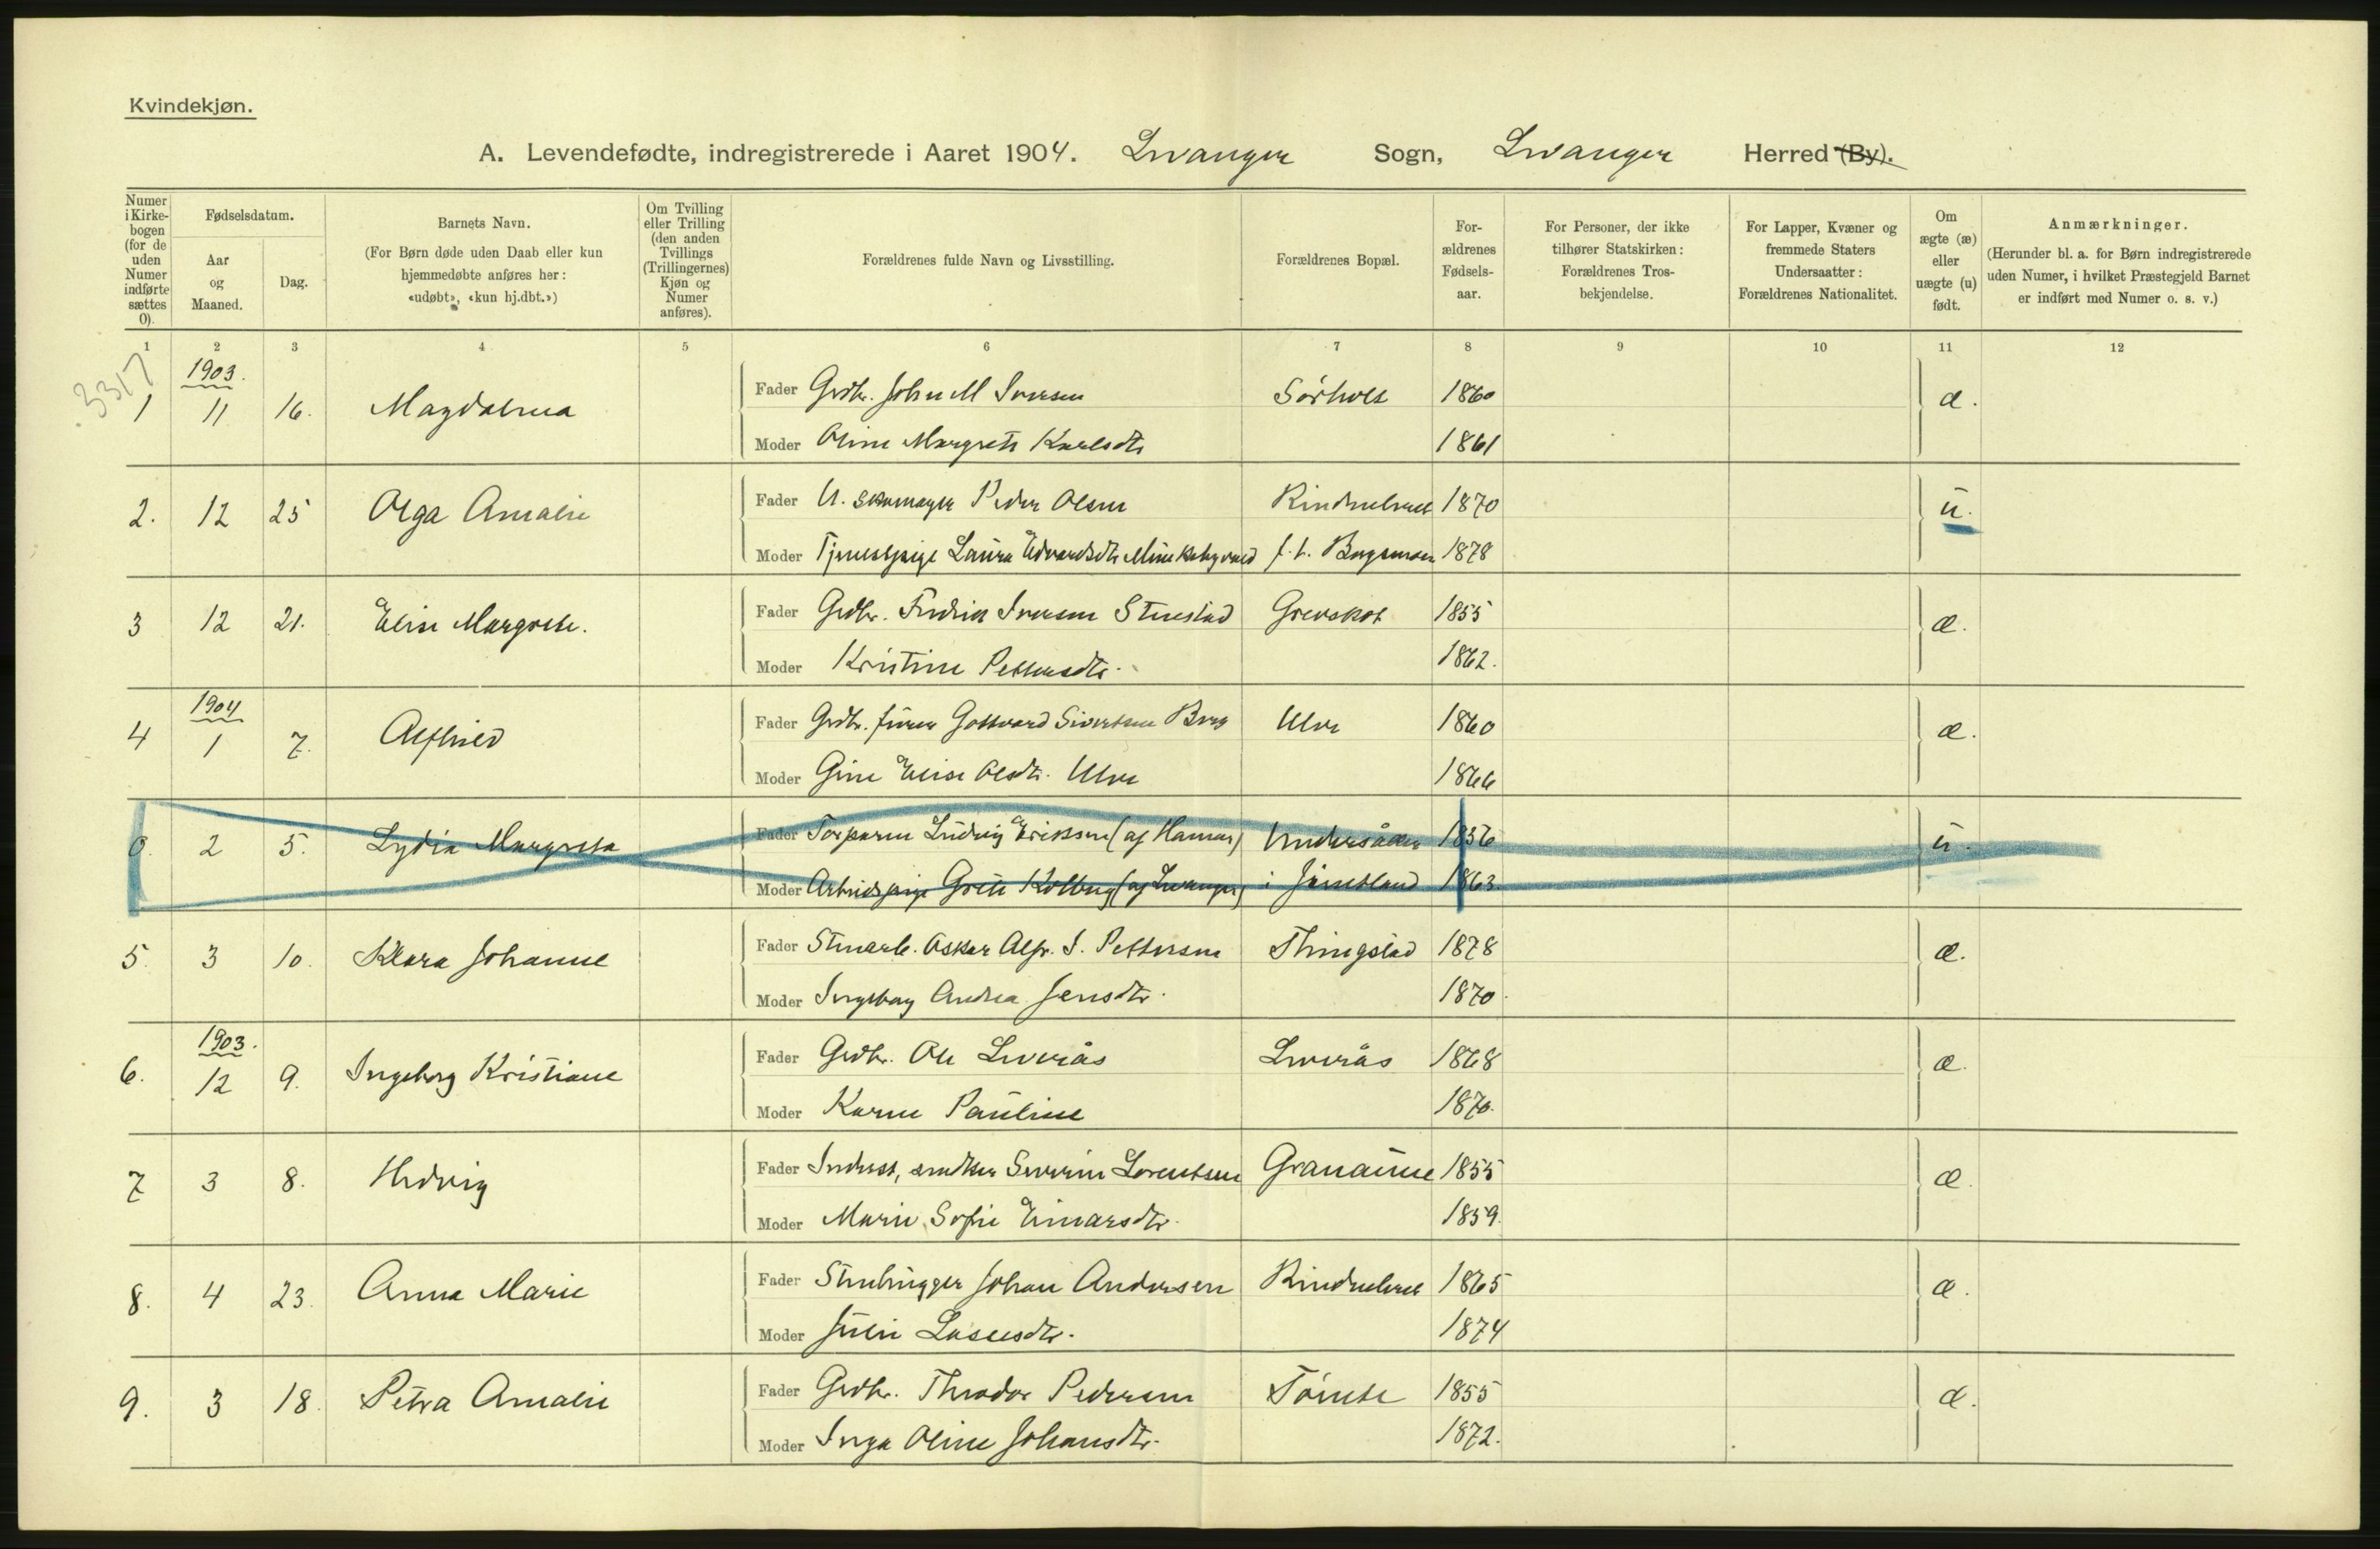 Kvindekjøn.
A. Levendefødte, indregistrerede i Aaret 1904. Levanger Sogn, Levanger Herred (By).
Numer i Kirkebogen (for de uden Numer indførte sættes 0).
Fødselsdatum.
Aar og Maaned.
Dag.
Barnets Navn.
(For Børn døde uden Daab eller kun hjemmedøbte anføres her: «udøbt», «kun hj.dbt.»)
Om Tvilling eller Trilling (den anden Tvillings (Trillingernes) Kjøn og Numer anføres).
Forældrenes fulde Navn og Livsstilling.
Forældrenes Bopæl.
Forældrenes Fødselsaar.
For Personer, der ikke tilhører Statskirken: Forældrenes Trosbekjendelse.
For Lapper, Kvæner og fremmede Staters Undersaatter: Forældrenes Nationalitet.
Om ægte (æ) eller uægte (u) født.
Anmærkninger.
(Herunder bl. a. for Børn indregistrerede uden Numer, i hvilket Præstegjeld Barnet er indført med Numer o. s. v.)
1 2 3 4 5 6 7 8 9 10 11 12
3317
1903.
1 11 16. Magdalena Fader Grdbr. John M Iversen Sørholt 1860 æ.
Moder Oline Margrete Karlsdtr 1861
2. 12 25 Olga Amalie Fader U. Skomager Peder Olsen Rindselvest 1870 u.
Moder Tjenestpige Laura Edvardsdtr 1878
3 12 21. Elise Margrete. Fader Grdbr. Fredrik Iversen Stenstad Grevskot 1855 æ.
Moder Kristine Pettersdtr. 1862.
1904
4 1 7. Alfhild Fader Grdbr. Gottvard Sivertsen Berg Ulve 1860 æ.
Moder Gine Elise Olsdtr. Ulve 1866
0. 2 5. Lydia Margreta Fader Torparen Ludvig Eriksen (af Hamar) Undersåker 1856 u.
Moder Arbeidspige Grete Kolberg (af Levanger) i Jämtland 1863.
5. 3 10. Klara Johanne Fader Stenarb. Oskar Alfr. I. Pettersen Thingstad 1878 æ.
Moder Ingeborg Andrea Jensdtr. 1870.
1903.
6. 12 9. Ingeborg Kristiane Fader Grdbr. Ole Leverås Leverås 1868 æ.
Moder Karen Pauline 1870.
7 3 8. Hedvig Fader Inderst, snedker Severin Lorentsen Granaune 1855 æ.
Moder Marie Sofie Einarsdtr. 1859.
8. 4 23. Anna Marie Fader Stenhugger Johan Andersen Rindselvest 1865 æ.
Moder Julie Lassesdtr. 1874
9. 3 18. Petra Amalie Fader Grdbr. Theodor Pedersen Tømte 1855 æ.
Moder Inga Oline Johansdtr. 1872.